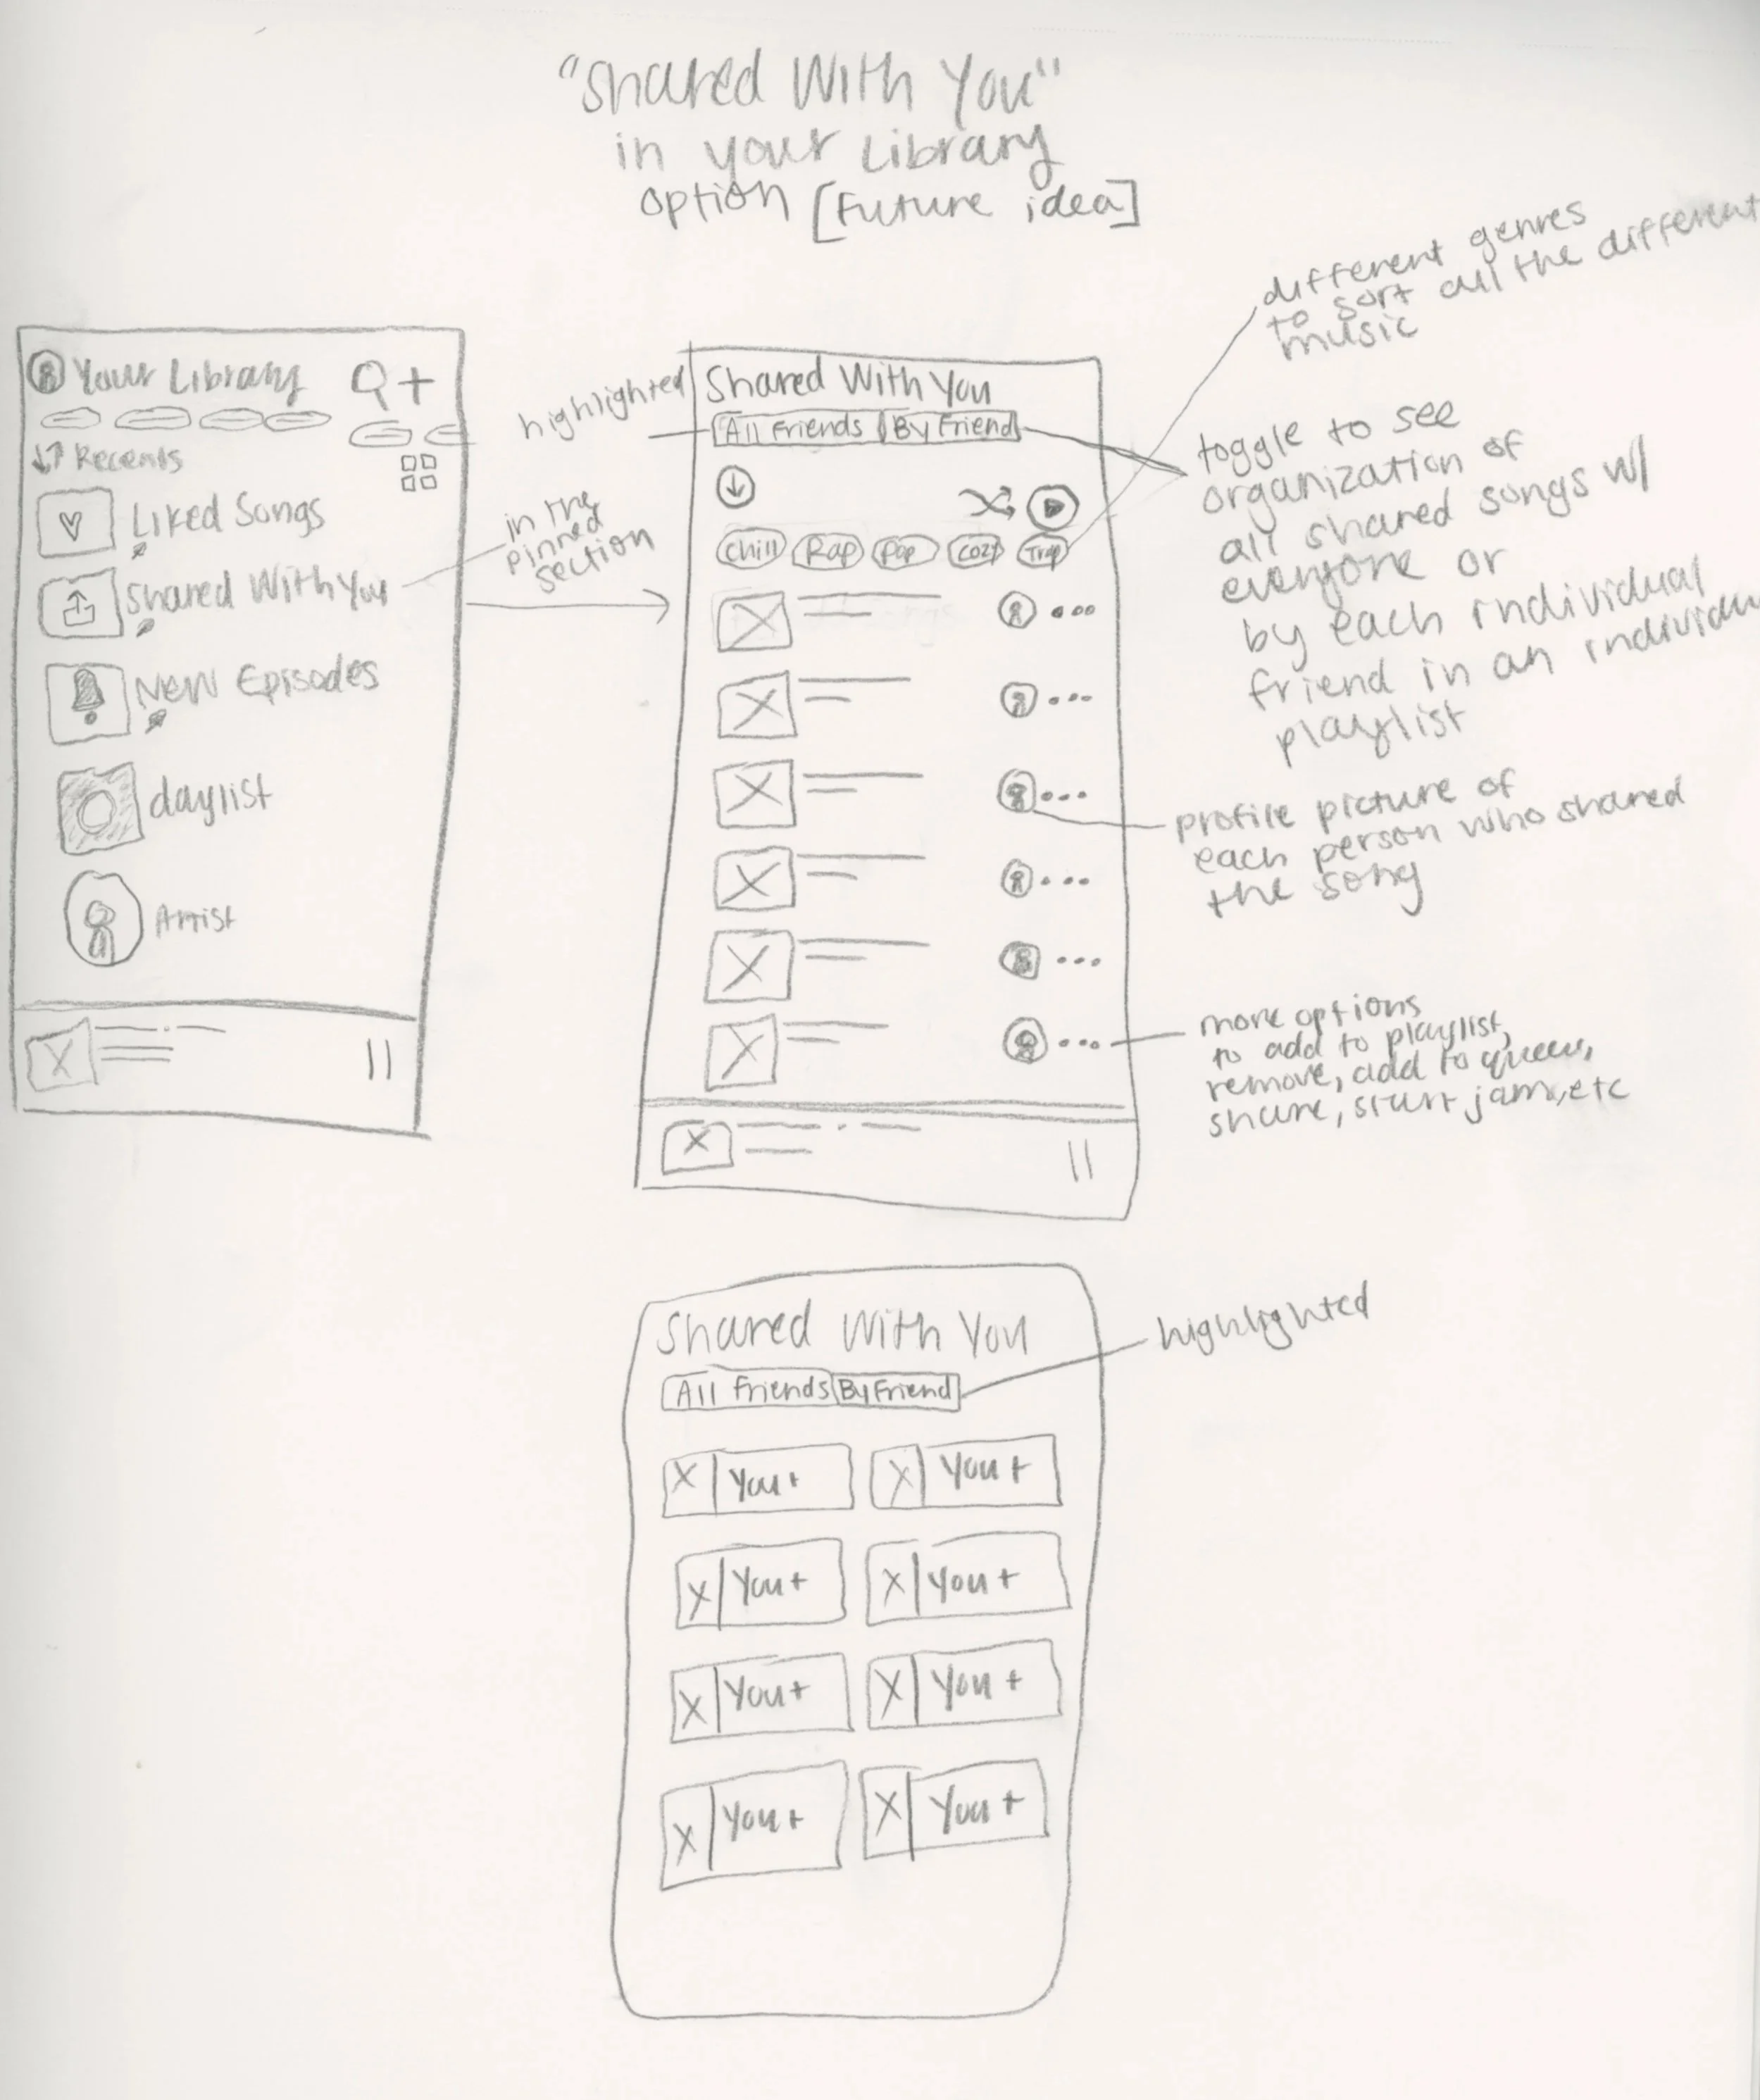 "Shared With You"
in your Library
option [Future idea]
different genres
to sort all the different
music
Your Library
Recents
Liked Songs
Shared With You
New Episodes
daylist
Artist
highlighted
in the
pinned
section
Shared With You
All Friends By Friend
Chill Rap Pop Cozy Trap
toggle to see
organization of
all shared songs w/
everyone or
by each individual
friend in an individual
playlist
profile picture of
each person who shared
the song
more options
to add to playlist,
remove, add to queue,
share, start jam, etc
Shared With You
All Friends By Friend
highlighted
You + You +
You + You +
You + You +
You + You +